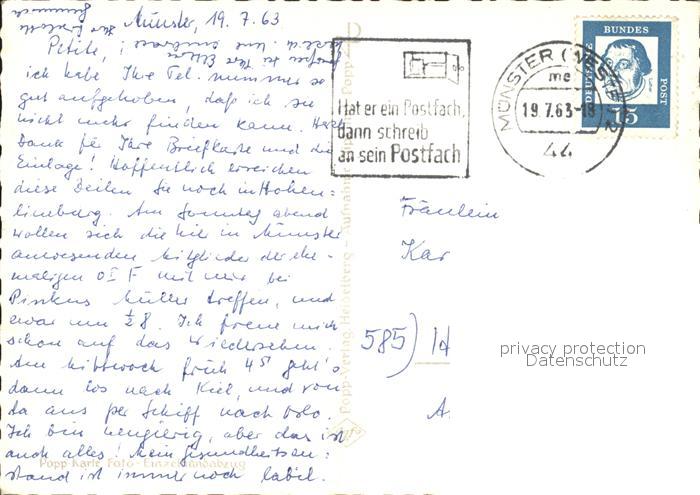 Münster, 19. 7. 63
Petite,
ich habe Ihre Tel. nummer so
gut aufgehoben, daß ich sie
nicht mehr finden kann. Herzl.
Dank für Ihre Briefkarte und die
Einlage! Hoffentlich erreichen
diese Zeilen Sie noch in Hohen=
limburg. Am Sonntag abend
wollen sich die hier in Münster
anwesenden Mitglieder der ehe-
maligen OIF mit mir bei
Pinkus Müller treffen, und
zwar um ½8. Ich freue mich
schon auf das Wiedersehen.
Am Mittwoch früh 4⁵ geht's
dann los nach Kiel, und von
da aus per Schiff nach Oslo.
Ich bin neugierig, aber das ist
auch alles! Mein Gesundheitszu=
stand ist immer noch labil.
Popp-Karte Foto-Einzelhandabzug
Popp-Verlag, Heidelberg - Aufnahme: Popp
Hat er ein Postfach,
dann schreib
an sein Postfach
MÜNSTER (WESTF) 2
me
19.7.63-18
44
DEUTSCHE BUNDESPOST
15
Fräulein
Kar
585) Id
A.
privacy protection
Datenschutz